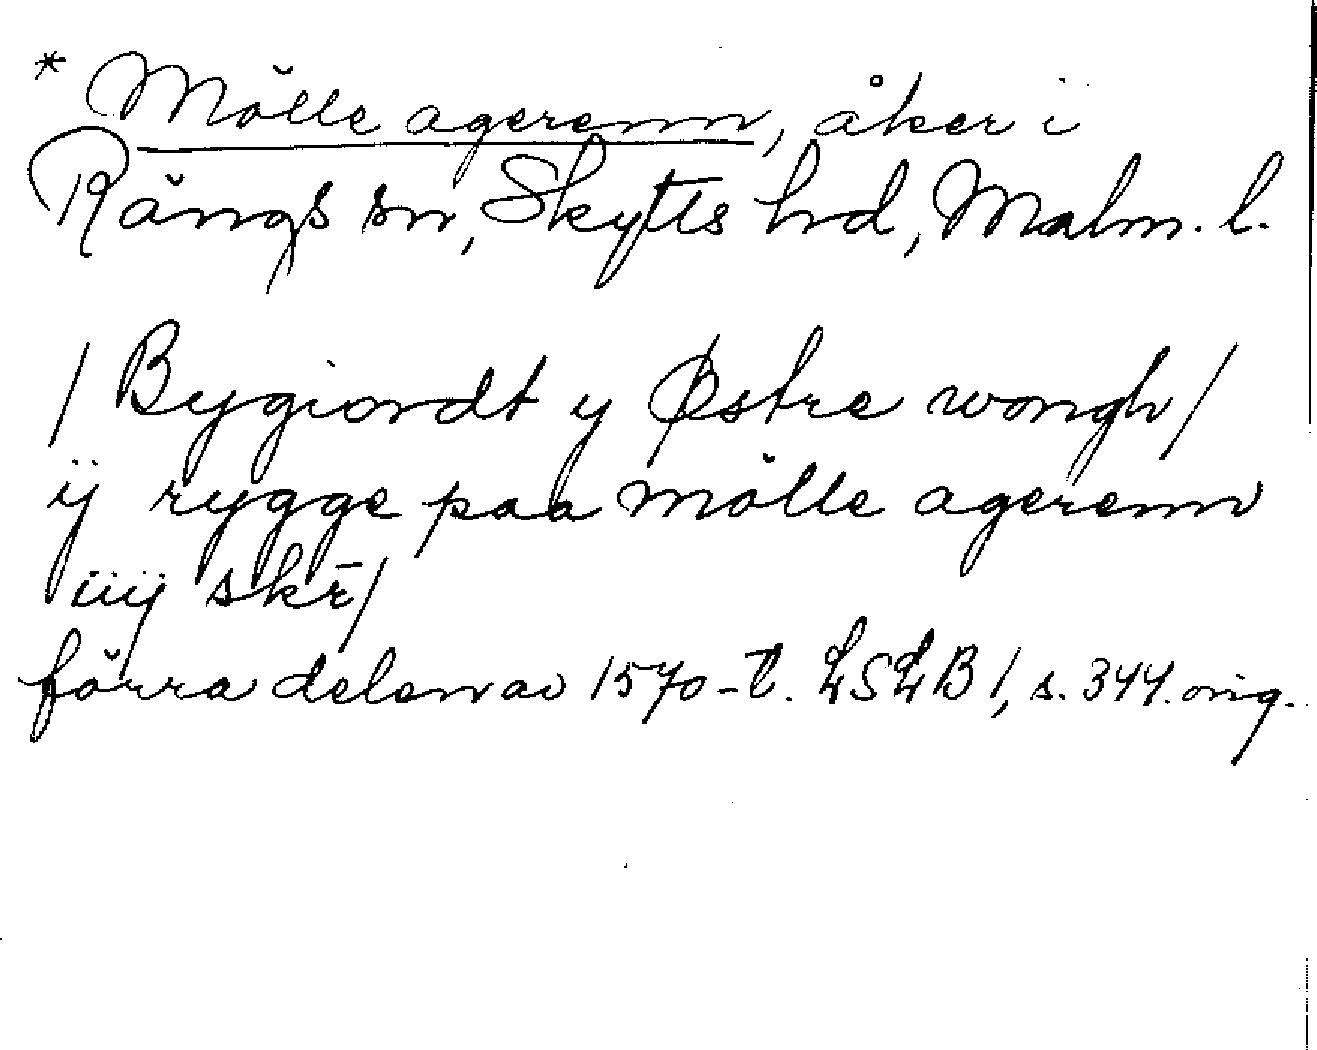 * Mölle agerenn, åker i
Rängs sn, Skytts hd, Malm. l.
/ Bygiordt y Østre wongh /
ij rygge paa mölle agerenn
iiij skr̄ /
förra delen av 1570-t. LSLB 1, s. 344. orig.